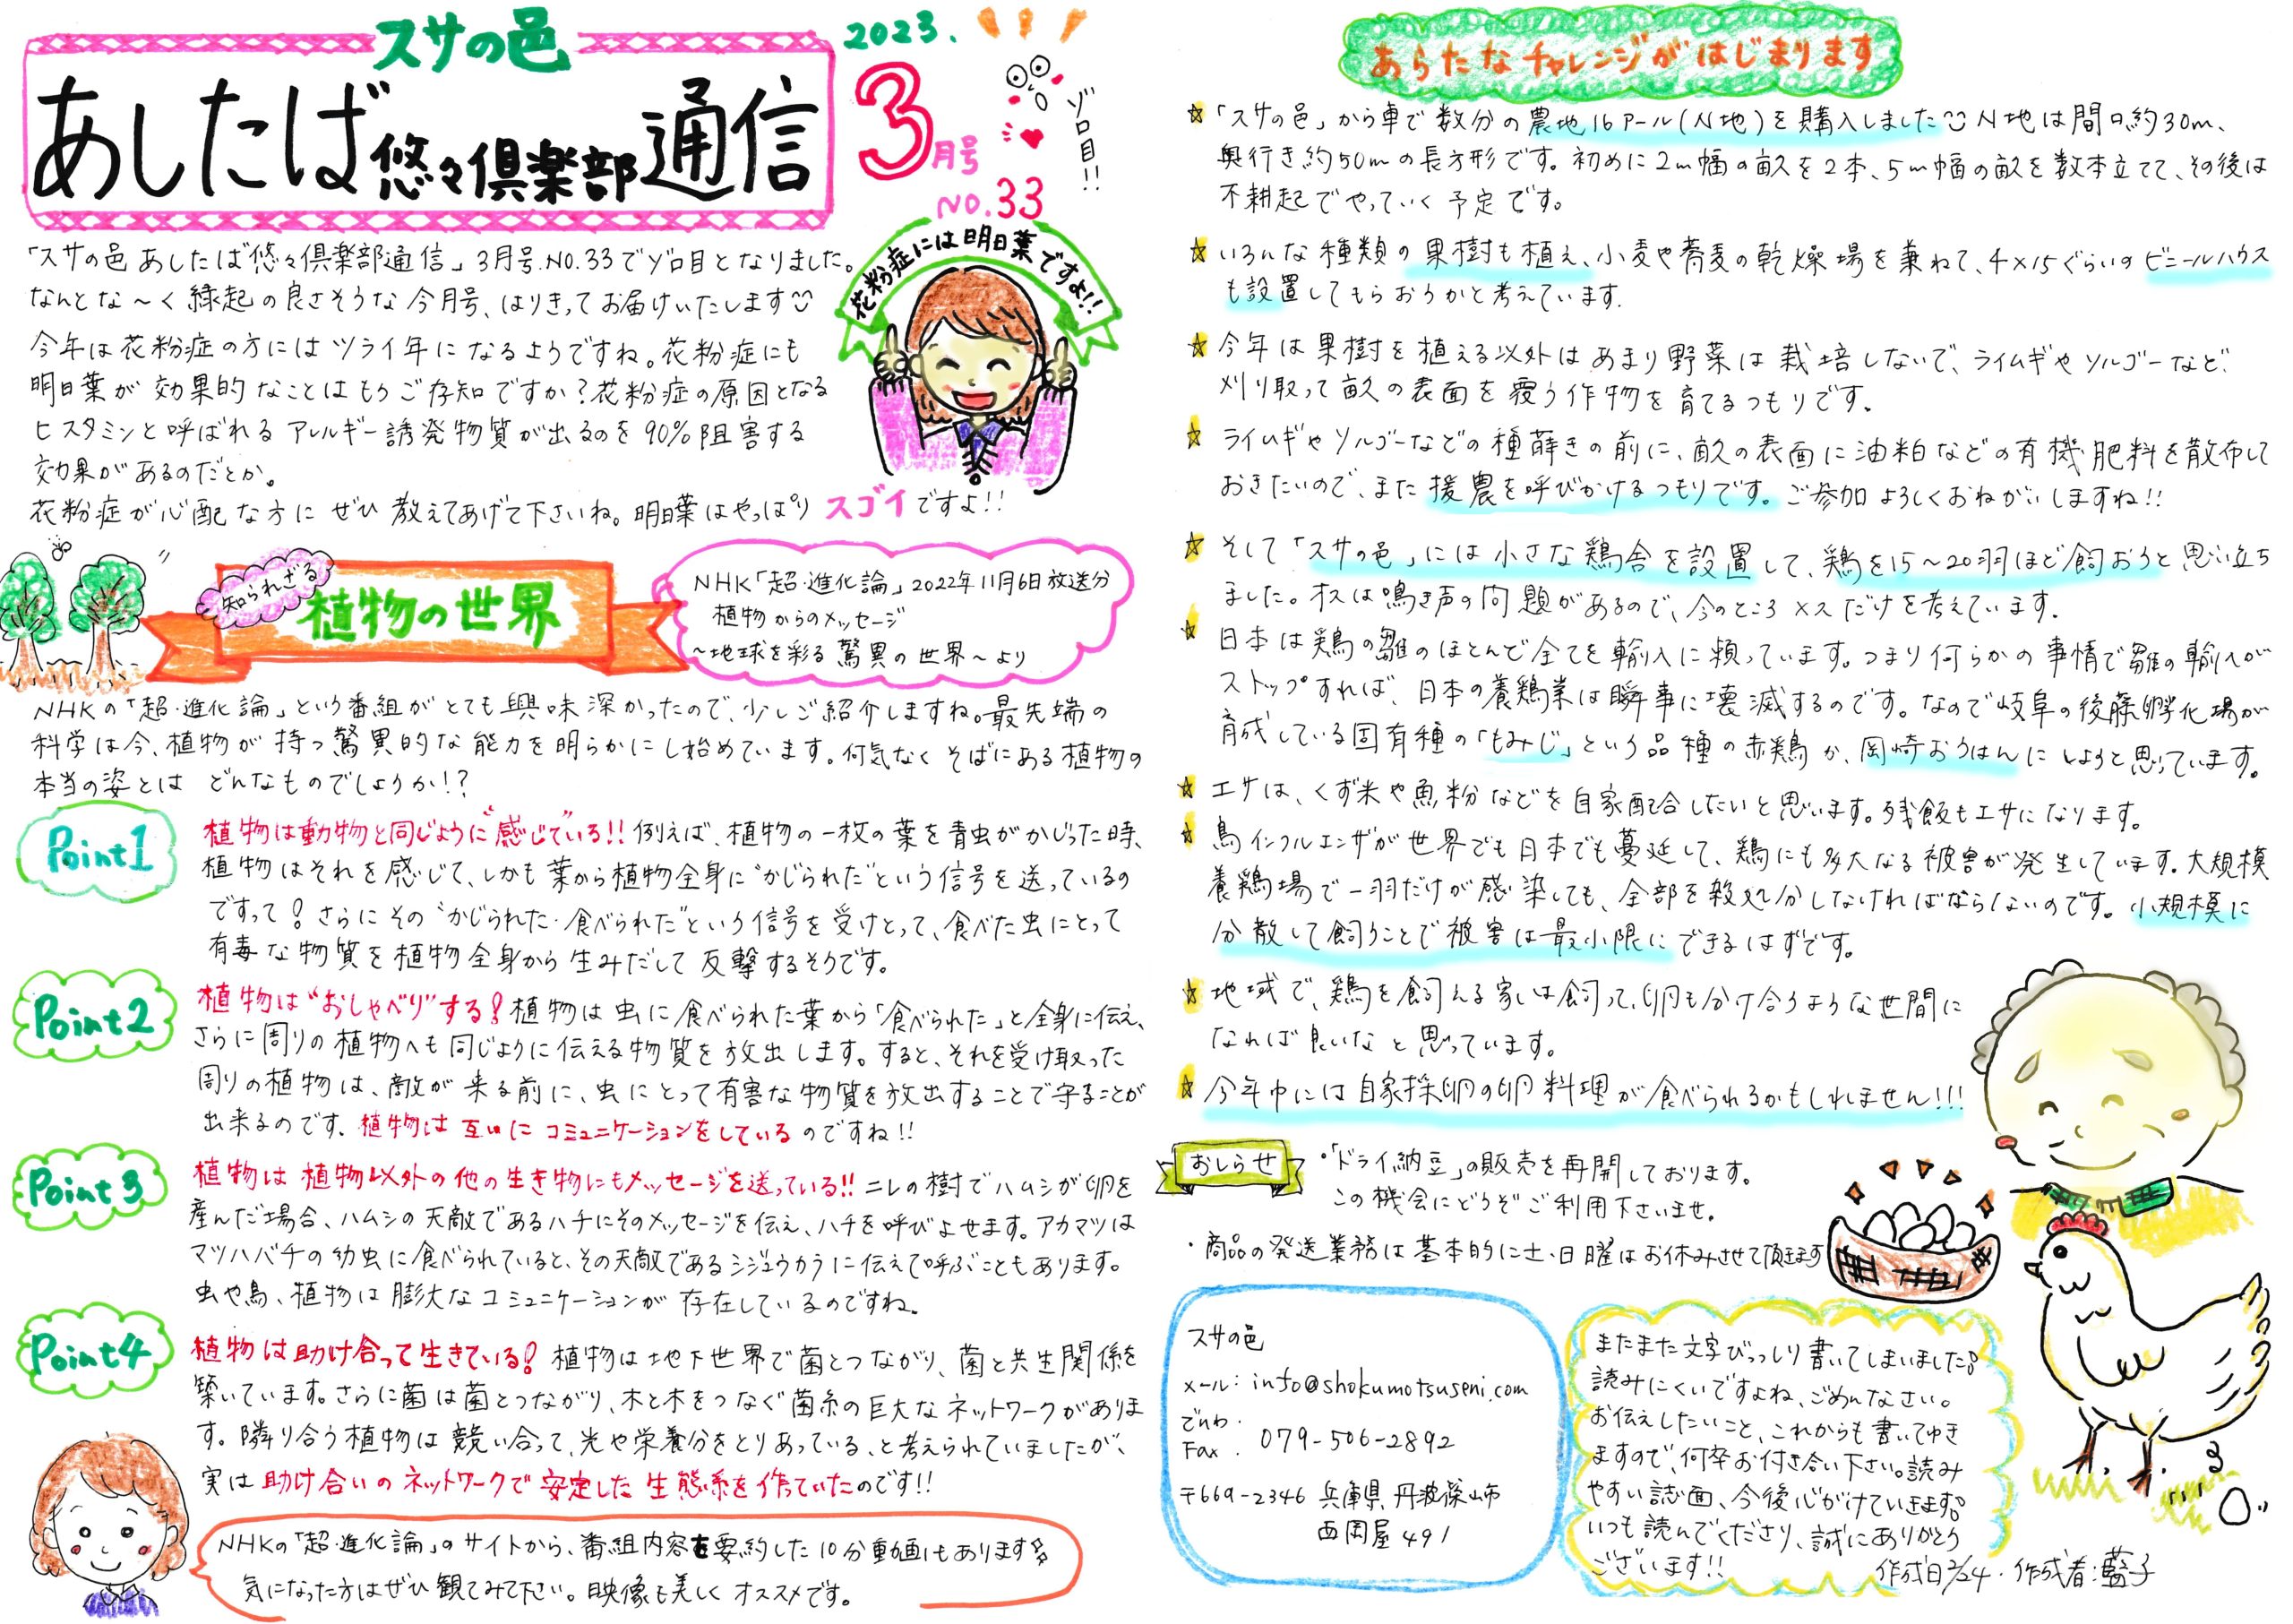 スサの邑
あしたば悠々倶楽部通信
2023.
3月号
NO.33
ゾロ目!!
「スサの邑 あしたば悠々倶楽部通信」3月号.NO.33でゾロ目となりました。
なんとな〜く縁起の良さそうな今月号、はりきってお届けいたします
今年は花粉症の方にはツライ年になるようですね。花粉症にも
明日葉が効果的なことはもうご存知ですか?花粉症の原因となる
ヒスタミンと呼ばれるアレルギー誘発物質が出るのを90%阻害する
効果があるのだとか。
花粉症が心配な方にぜひ教えてあげて下さいね。明日葉はやっぱりスゴイですよ!!
花粉症には明日葉ですよ!!
知られざる
植物の世界
NHK「超・進化論」2022年11月6日放送分
植物からのメッセージ
〜地球を彩る驚異の世界〜より
NHKの「超・進化論」という番組がとても興味深かったので、少しご紹介しますね。最先端の
科学は今、植物が持つ驚異的な能力を明らかにし始めています。何気なくそばにある植物の
本当の姿とは どんなものでしょうか!?
Point1
植物は動物と同じように“感じている!!例えば、植物の一枚の葉を青虫がかじった時、
植物はそれを感じて、しかも葉から植物全身に“かじられた”という信号を送っているの
ですって!さらにその“かじられた・食べられた”という信号を受けとって、食べた虫にとって
有毒な物質を植物全身から生みだして反撃するそうです。
Point2
植物は“おしゃべり”する!植物は虫に食べられた葉から「食べられた」と全身に伝え、
さらに周りの植物へも同じように伝える物質を放出します。すると、それを受け取った
周りの植物は、敵が来る前に、虫にとって有害な物質を放出することで守ることが
出来るのです。植物は互いにコミュニケーションをしているのですね!!
Point3
植物は植物以外の他の生き物にもメッセージを送っている!!ニレの樹でハムシが卵を
産んだ場合、ハムシの天敵であるハチにそのメッセージを伝え、ハチを呼びよせます。アカマツは
マツハバチの幼虫に食べられていると、その天敵であるシジュウカラに伝えて呼ぶこともあります。
虫や鳥、植物は膨大なコミュニケーションが存在しているのですね。
Point4
植物は助け合って生きている!植物は地下世界で菌とつながり、菌と共生関係を
築いています。さらに菌は菌とつながり、木と木をつなぐ菌糸の巨大なネットワークがありま
す。隣り合う植物は競い合って、光や栄養分をとりあっている、と考えられていましたが、
実は助け合いのネットワークで安定した生態系を作っていたのです!!
NHKの「超・進化論」のサイトから、番組内容を要約した10分動画もあります
気になった方はぜひ観てみて下さい。映像も美しくオススメです。
あらたなチャレンジがはじまります
☆「スサの邑」から車で数分の農地16アール(N地)を購入しました N地は間口約30m、
奥行き約50mの長方形です。初めに2m幅の畝を2本、5m幅の畝を数本立てて、その後は
不耕起でやっていく予定です。
☆いろんな種類の果樹も植え、小麦や蕎麦の乾燥場を兼ねて、4×15ぐらいのビニールハウス
も設置してもらおうかと考えています.
☆今年は果樹を植える以外はあまり野菜は栽培しないで、ライムギやソルゴーなど、
刈り取って畝の表面を覆う作物を育てるつもりです。
☆ライムギやソルゴーなどの種蒔きの前に、畝の表面に油粕などの有機肥料を散布して
おきたいので、また援農を呼びかけるつもりです。ご参加よろしくおねがいしますね!!
☆そして「スサの邑」には小さな鶏舎を設置して、鶏を15〜20羽ほど飼おうと思い立ち
ました。オスは鳴き声の問題があるので、今のところメスだけを考えています.
☆日本は鶏の雛のほとんど全てを輸入に頼っています。つまり何らかの事情で雛の輸入が
ストップすれば、日本の養鶏業は瞬事に壊滅するのです。なので岐阜の後藤孵化場が
育成している固有種の「もみじ」という品種の赤鶏か、岡崎おうはんにしようと思っています。
☆エサは、くず米や魚粉などを自家配合したいと思います。残飯もエサになります。
☆鳥インフルエンザが世界でも日本でも蔓延して、鶏にも多大なる被害が発生しています。大規模
養鶏場で一羽だけが感染しても、全部を殺処分しなければならないのです。小規模に
分散して飼うことで被害は最小限にできるはずです。
☆地域で、鶏を飼える家は飼って、卵も分け合うような世間に
なれば良いなと思っています。
☆今年中には自家採卵の卵料理が食べられるかもしれません!!!
おしらせ
・「ドライ納豆」の販売を再開しております。
この機会にどうぞご利用下さいませ。
・商品の発送業務は基本的に土・日曜はお休みさせて頂きます
スサの邑
メール:info@shokumotsuseni.com
でんわ.
Fax. 079-506-2892
〒669-2346 兵庫県丹波篠山市
西岡屋491
またまた文字びっしり書いてしまいました。
読みにくいですよね、ごめんなさい。
お伝えしたいこと、これからも書いてゆき
ますので、何卒お付き合い下さい。読み
やすい誌面、今後心がけていきます。
いつも読んでくださり、誠にありがとう
ございます!!
作成日2/24・作成者:藍子